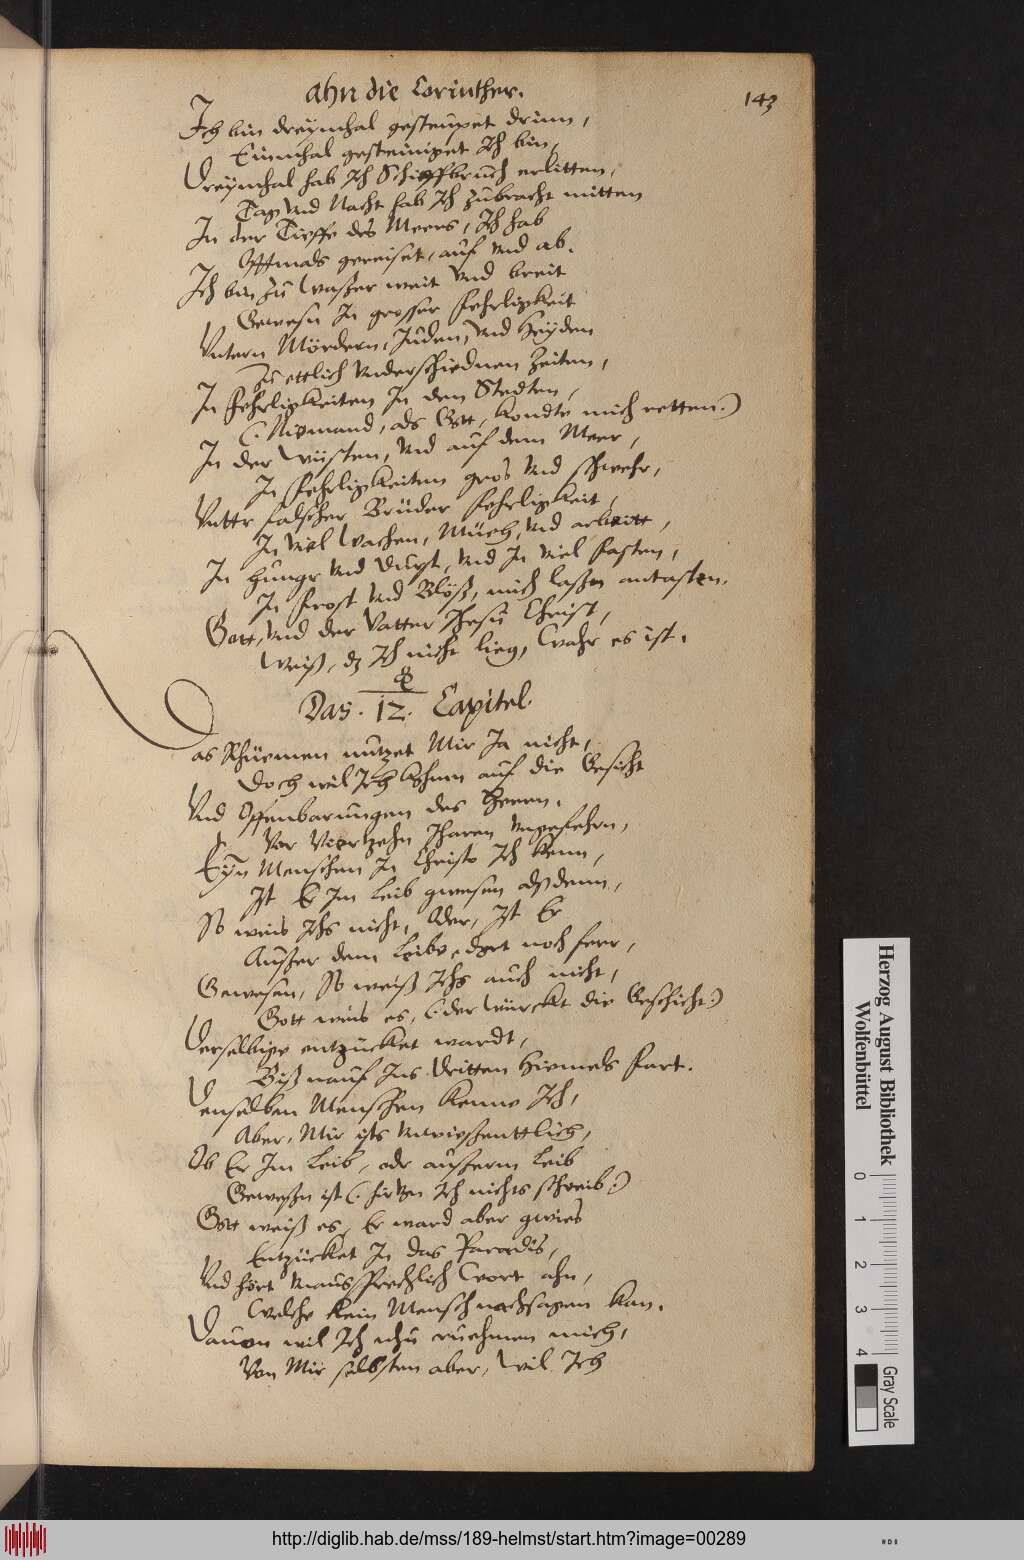 ahn die Corinther.
143
Ich bin dreymhal gesteupet drinn,
Einmhal gesteiniget Ich bin,
Dreymhal hab Ich Schieffbruch erlitten,
Tag Vnd Nacht hab Ich zubracht mitten
In der Tieffe des Meers, Ich hab
Offtmals gereiset, auf Vnd ab.
Ich bin zu Waßer weit Vnd breit
Gewesn In grosser fehrligkeit
Vntern Mördern, Juden, Vnd Heyden
Zu ettlich Vnderschiednen Zeiten,
In fehrligkeiten In den Stedten,
(. Niemand, als Gott, kondte mich retten.)
In der Wüsten, Vnd auf dem Meer,
In fehrligkeiten gros Vnd schwehr,
Vnttr falscher Brüder fehrligkeit,
In Viel Wachen, Müeh, Vnd arbeitt,
In Hungr Vnd Durst, Vnd In viel fasten,
In frost Vnd Blöß, mich laßen antasten.
Gott, Vnd der Vatter Ihesu Christ,
Weiß, dz Ich nicht lieg, Wahr es ist.
Das. 12. Capitel.
as Rhüemen nutzet Mir Ja nicht,
Doch wil Ich kohmm auf die Gesicht
Vnd Offenbarungen des Herrn.
Vor Viertzehn Jharen Vngefehrn,
Eyn Menschen In Christo Ich kenn,
Ist Er Im Leib gwesen alßdenn,
So weis Ichs nicht, Oder, Ist Er
Außer dem Leibe, dort noch ferr,
Gewesen, So weiß Ichs auch nicht,
Gott weis es, (. der würckt die Geschicht.)
Derselbige entzücket wardt,
Biß nauf Ins dritten Hiemels fart.
Denselben Menschen kenne Ich,
Aber, Mir ists Vnwießenttlich,
Ob Er Im Leib, odr außerm Leib
Geweßn ist (. hirVon Ich nichts schreib.)
Gott weiß es, Er ward aber gwies
Entzücket In das Paradis,
Vnd hört Vnaussprechlich Wort ahn,
Welche kein Mensch nachsagen kan.
Dauon wil Ich nhu ruehmen mich,
Von Mir selbsten aber, Wil Ich
Herzog August Bibliothek
Wolfenbüttel
0 1 2 3 4
Gray Scale
http://diglib.hab.de/mss/189-helmst/start.htm?image=00289